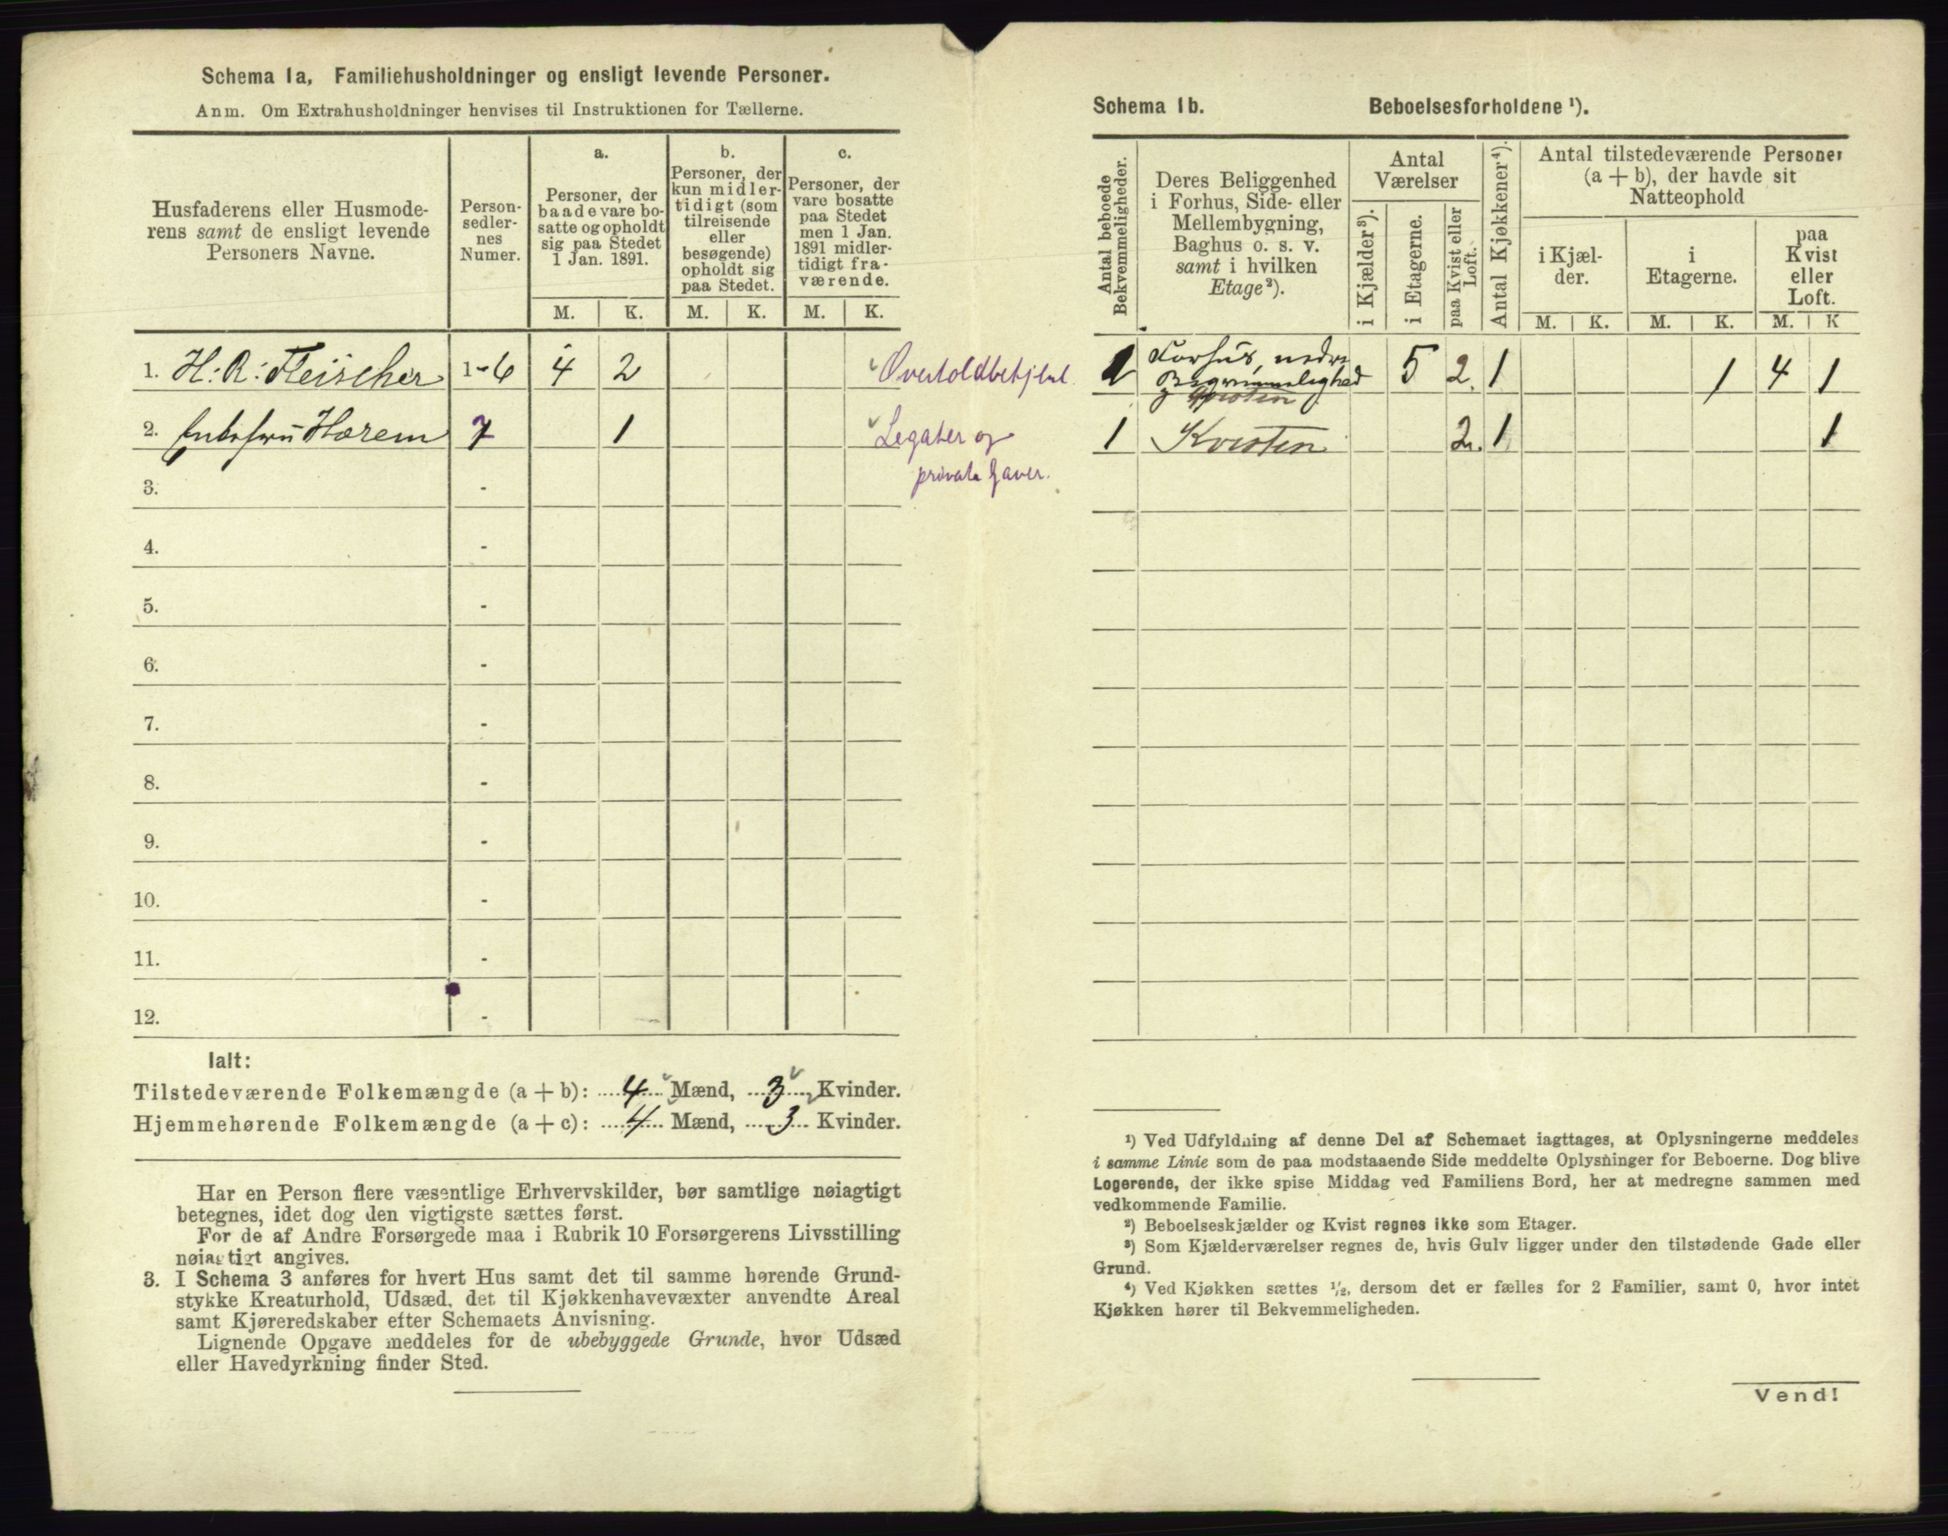 Schema 1a, Familiehusholdninger og ensligt levende Personer.
Anm. Om Extrahusholdninger henvises til Instruktionen for Tællerne.
Husfaderens eller Husmode-
rens samt de ensligt levende
Personers Navne.
Person-
sedler-
nes
Numer.
a.
Personer, der
baade vare bo-
satte og opholdt
sig paa Stedet
1 Jan. 1891.
b.
Personer, der
kun midler-
tidigt (som
tilreisende
eller
besøgende)
opholdt sig
paa Stedet.
c.
Personer, der
vare bosatte
paa Stedet
men 1 Jan.
1891 midler-
tidigt fra-
værende.
M. K. M. K. M. K.
1. H. R. Fleischer 1-6 4 2 Overtoldbetjent.
2. Enkefru Harem 7 1 Legater og
private Gaver.
3. -
4. -
5. -
6. -
7. -
8. -
9. -
10. -
11. -
12. -
Ialt:
Tilstedeværende Folkemængde (a + b): 4 Mænd, 3 Kvinder.
Hjemmehørende Folkemængde (a + c): 4 Mænd, 3 Kvinder.
Har en Person flere væsentlige Erhvervskilder, bør samtlige nøiagtigt
betegnes, idet dog den vigtigste sættes først.
For de af Andre Forsørgede maa i Rubrik 10 Forsørgerens Livsstilling
nøiagtigt angives.
3. I Schema 3 anføres for hvert Hus samt det til samme hørende Grund-
stykke Kreaturhold, Udsæd, det til Kjøkkenhavevæxter anvendte Areal
samt Kjøreredskaber efter Schemaets Anvisning.
Lignende Opgave meddeles for de ubebyggede Grunde, hvor Udsæd
eller Havedyrkning finder Sted.
Schema 1b. Beboelsesforholdene ¹).
Antal beboede
Bekvemmeligheder.
Deres Beliggenhed
i Forhus, Side- eller
Mellembygning,
Baghus o. s. v.
samt i hvilken
Etage²).
Antal
Værelser
i Kjælder³).
i Etagerne.
paa Kvist eller
Loft.
Antal Kjøkkener⁴).
Antal tilstedeværende Personer
(a + b), der havde sit
Natteophold
i Kjæl-
der.
i
Etagerne.
paa
Kvist
eller
Loft.
M. K. M. K. M. K
1 Forhus, nedre 5 2 1 1 4 1
og Kvisten
1 Kvisten 2 1 1
¹) Ved Udfyldning af denne Del af Schemaet iagttages, at Oplysningerne meddeles
i samme Linie som de paa modstaaende Side meddelte Oplysninger for Beboerne. Dog blive
Logerende, der ikke spise Middag ved Familiens Bord, her at medregne sammen med
vedkommende Familie.
²) Beboelseskjælder og Kvist regnes ikke som Etager.
³) Som Kjælderværelser regnes de, hvis Gulv ligger under den tilstødende Gade eller
Grund.
⁴) Ved Kjøkken sættes ½, dersom det er fælles for 2 Familier, samt 0, hvor intet
Kjøkken hører til Bekvemmeligheden.
Vend!